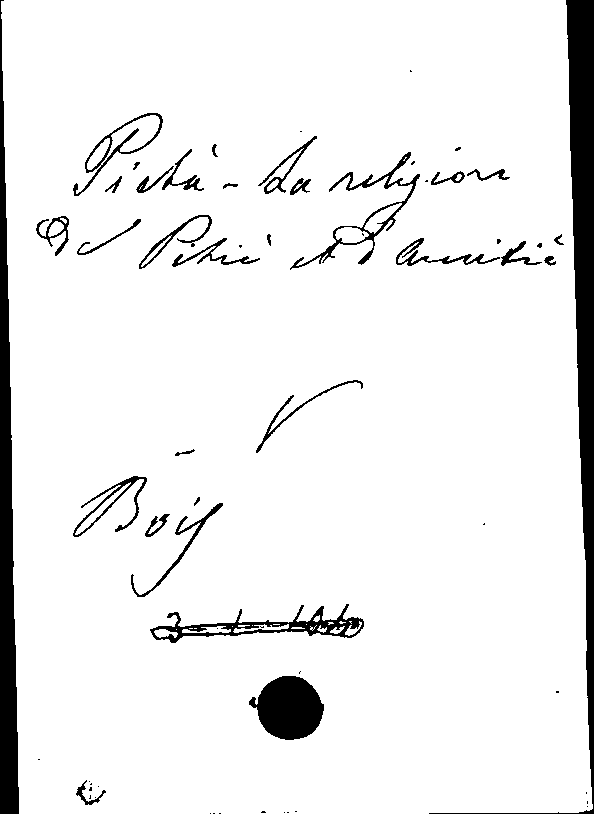 Pietà - La religion
de Pitié et d'Amitié
V
Bois
3 - 1 - 1010